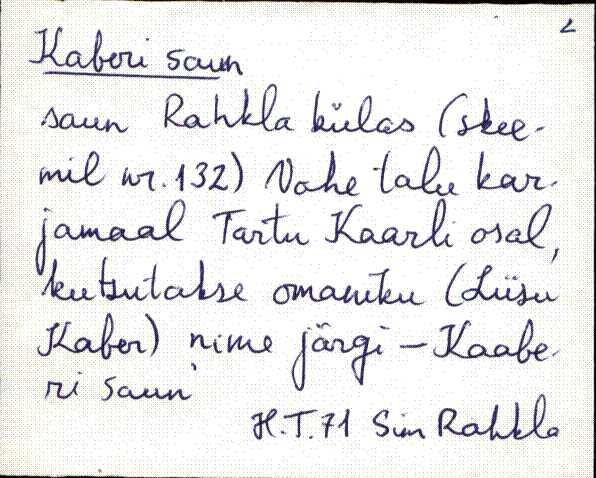 2
Kaberi saun
saun Rahkla külas (skee-
mil nr. 132) Vahe talu kar-
jamaal Tartu Kaarli osal,
kutsutakse omaniku (Liisu
Kaber) nime järgi – Kaabe-
ri saun
H.T. 71 Sim Rahkla